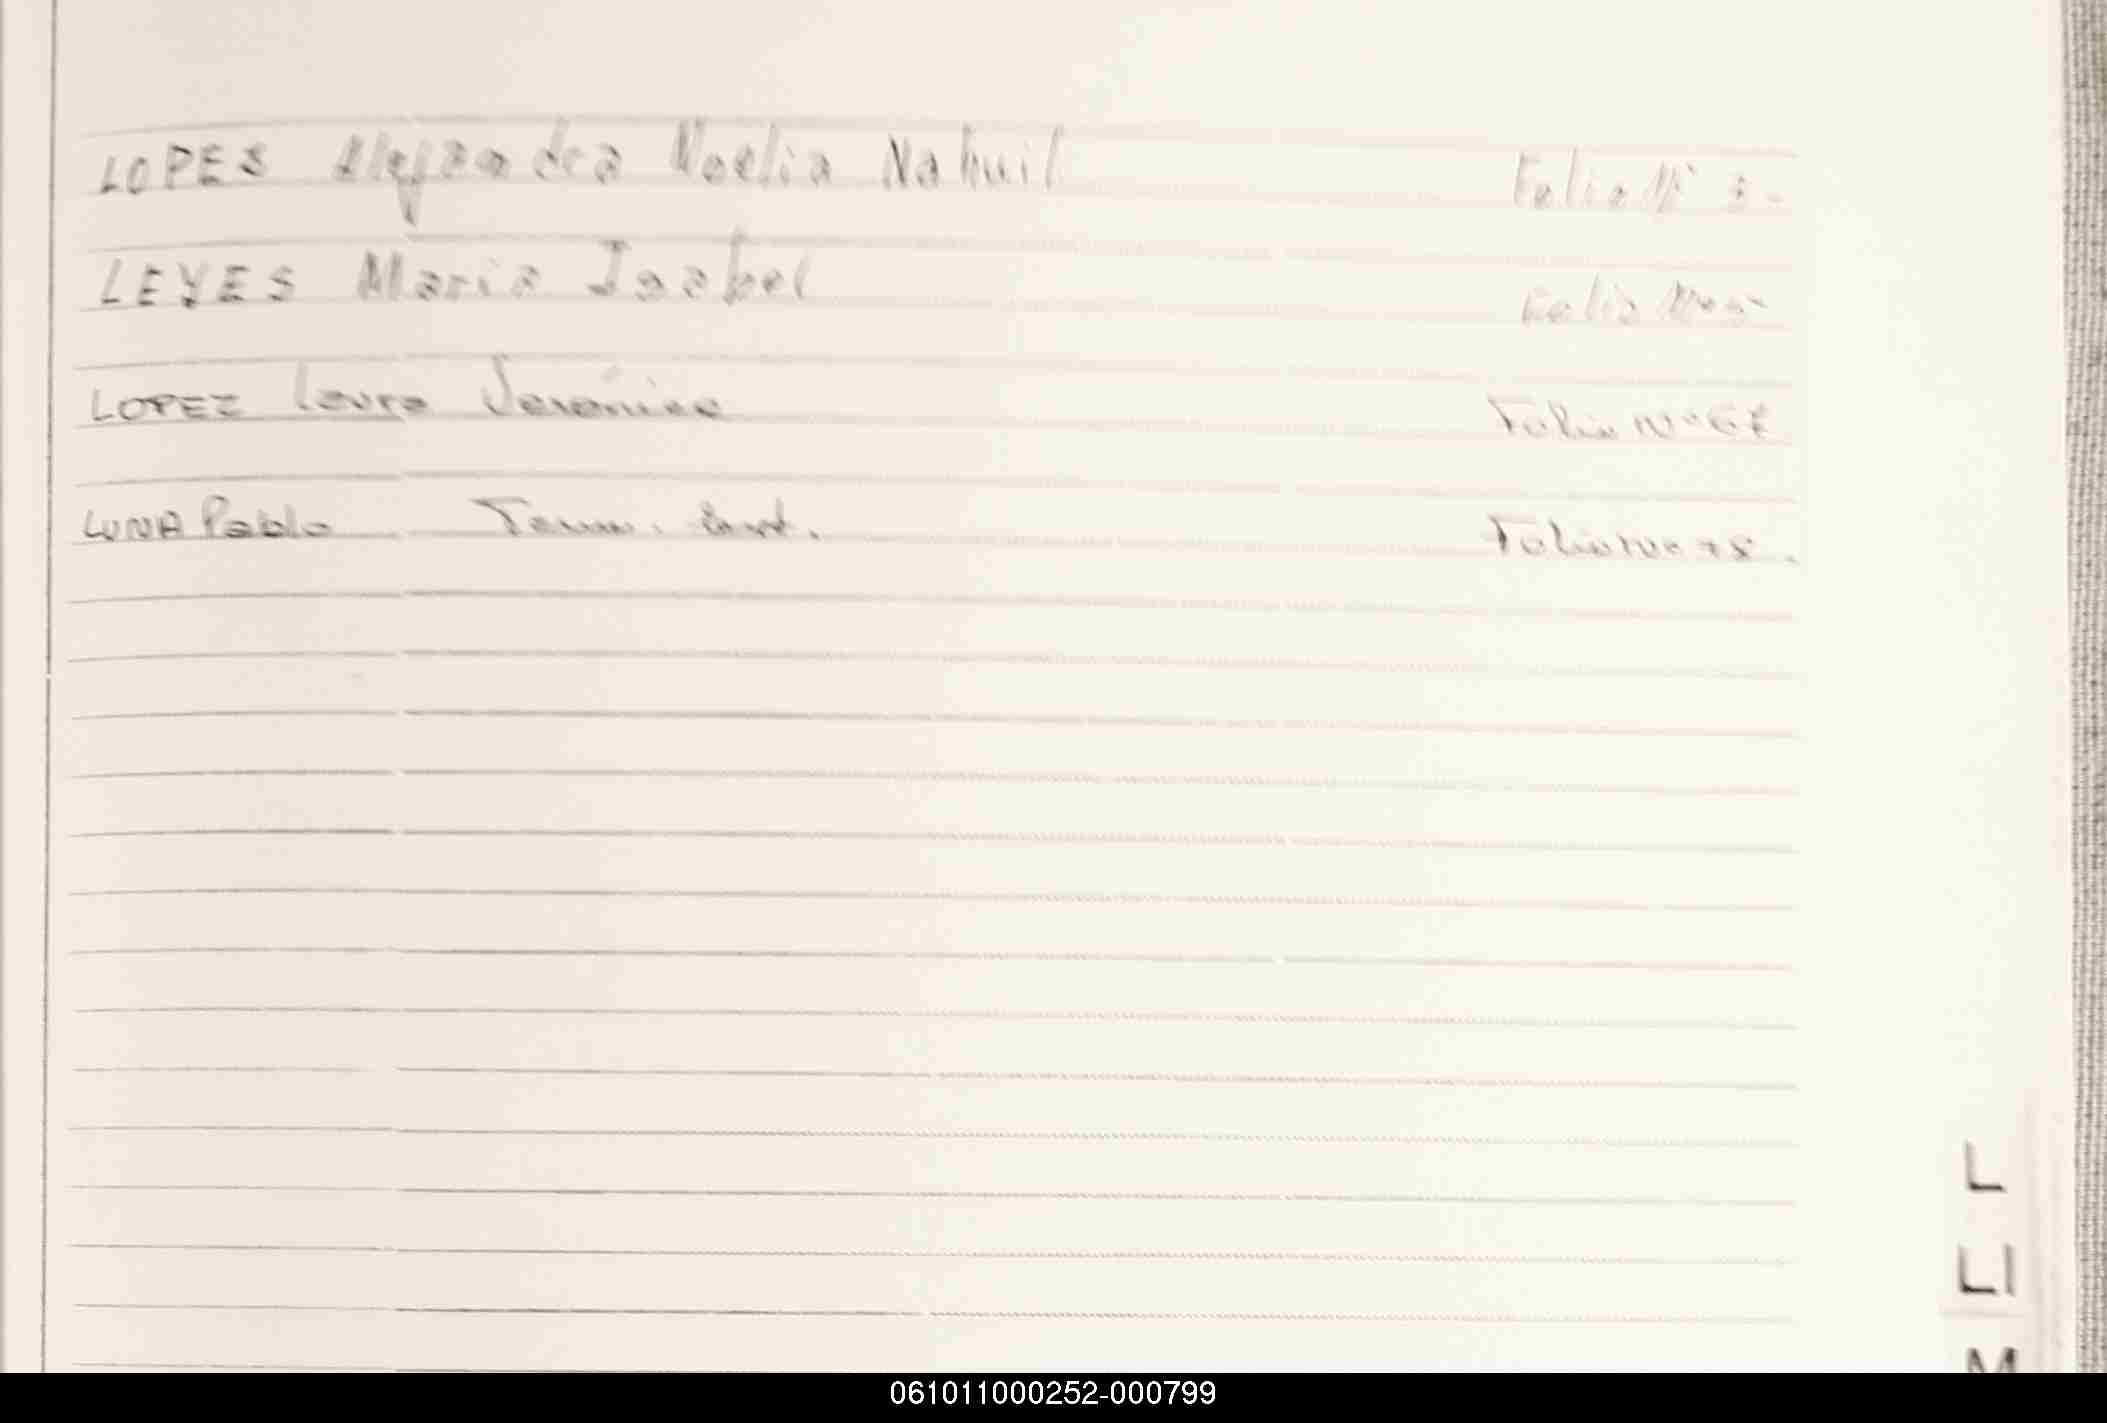 LOPES Alejandra Noelia Nahuil Folio Nº 3-
LEYES Maria Isabel Folio Nº 5-
LOPEZ Laura Verónica Folio Nº 67
LUNA Pablo Folio Nº 78.
L
LL
M
061011000252-000799